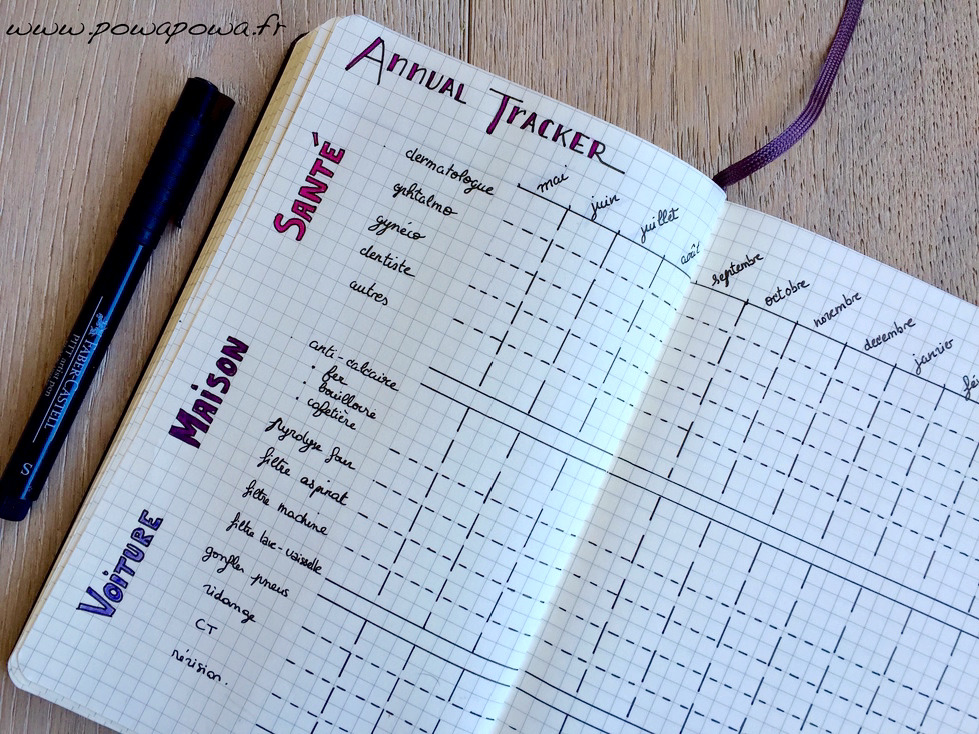 www.powapowa.fr
ANNUAL TRACKER
mai
juin
juillet
août
septembre
octobre
novembre
decembre
janvier
SANTÉ
dermatologue
ophtalmo
gynéco
dentiste
autres
MAISON
anti-calcaire
• fer
• bouilloire
• cafetière
pyrolyse four
filtre aspirat
filtre machine
filtre lave-vaisselle
VOITURE
gonfler pneus
vidange
CT
révision.
FABER-CASTELL
PITT artist pen
S